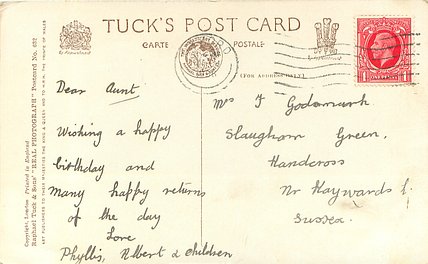 TUCK'S POST CARD
CARTE POSTALE
(FOR ADDRESS ONLY.)
Dear Aunt
Wishing a happy
birthday and
Many happy returns
of the day
Love
Phyllis, Albert & children
Mrs F Godsmark
Slaugham Green,
Handcross
Nr Haywards H.
Sussex.
Copyright. London Printed in England
Raphael Tuck & Sons' "REAL PHOTOGRAPH" Postcard No.
ART PUBLISHERS TO THEIR MAJESTIES THE KING & QUEEN AND TO H.R.H. THE PRINCE OF WALES